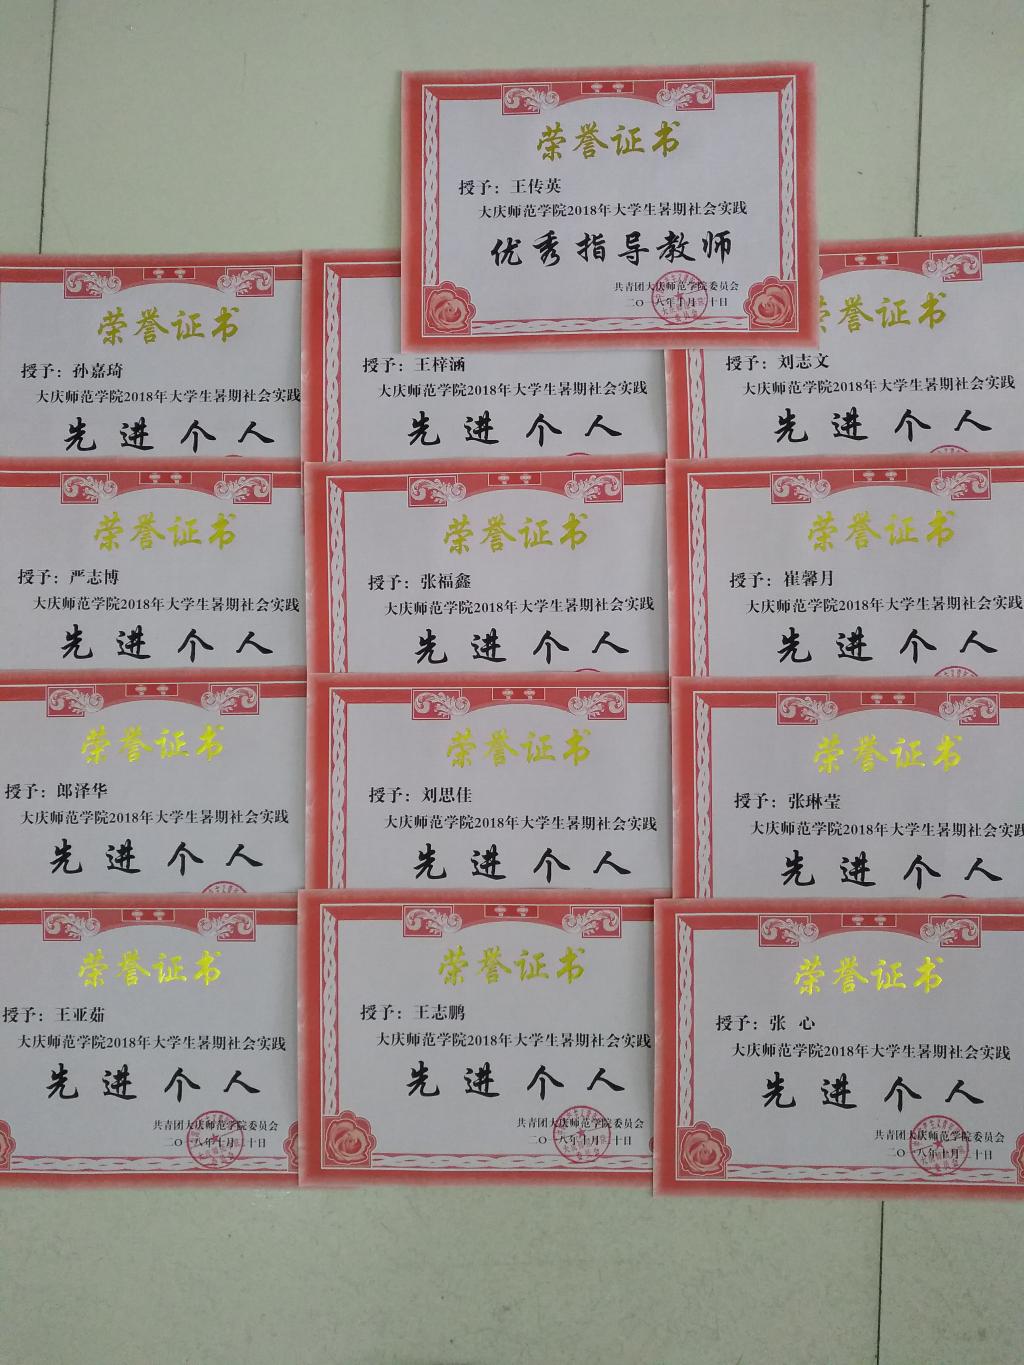 荣誉证书
授予：王传英
大庆师范学院2018年大学生暑期社会实践
优秀指导教师
共青团大庆师范学院委员会
二〇一八年十月二十日
荣誉证书
授予：孙嘉琦
大庆师范学院2018年大学生暑期社会实践
先进个人
授予：王梓涵
大庆师范学院2018年大学生暑期社会实践
先进个人
荣誉证书
授予：刘志文
大庆师范学院2018年大学生暑期社会实践
先进个人
荣誉证书
授予：严志博
大庆师范学院2018年大学生暑期社会实践
先进个人
荣誉证书
授予：张福鑫
大庆师范学院2018年大学生暑期社会实践
先进个人
荣誉证书
授予：崔馨月
大庆师范学院2018年大学生暑期社会实践
先进个人
荣誉证书
授予：郎泽华
大庆师范学院2018年大学生暑期社会实践
先进个人
荣誉证书
授予：刘思佳
大庆师范学院2018年大学生暑期社会实践
先进个人
荣誉证书
授予：张琳莹
大庆师范学院2018年大学生暑期社会实践
先进个人
荣誉证书
授予：王亚茹
大庆师范学院2018年大学生暑期社会实践
先进个人
共青团大庆师范学院委员会
二〇一八年十月二十日
荣誉证书
授予：王志鹏
大庆师范学院2018年大学生暑期社会实践
先进个人
共青团大庆师范学院委员会
二〇一八年十月二十日
荣誉证书
授予：张 心
大庆师范学院2018年大学生暑期社会实践
先进个人
共青团大庆师范学院委员会
二〇一八年十月二十日